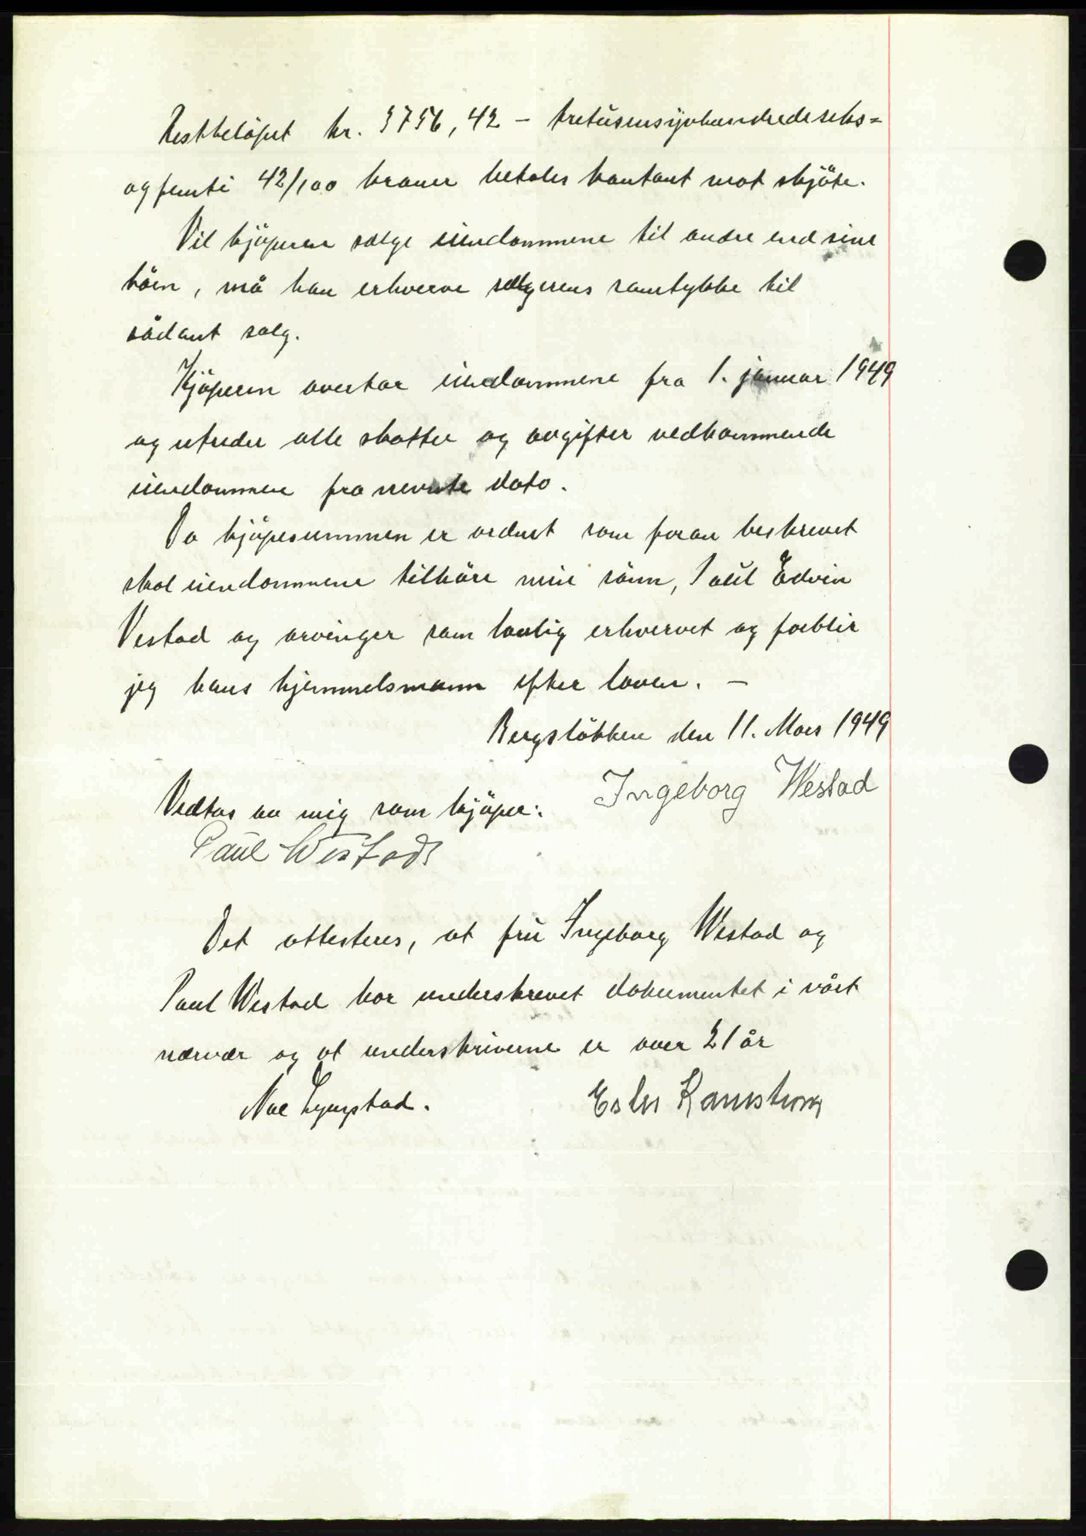 Restbeløpet kr. 3756,42 – tretusensjvhundredeseks=
og femti 42/100 kroner betales kontant mot skjöte.
Vil kjöperen selge eiendommene til andre end sine
börn, må han erhverve selgerens samtykke til
sådant salg.
Kjöperen overtar eiendommene fra 1. januar 1949
og utreder alle skatter og avgifter vedkommende
eiendommene fra nevnte dato.
Da kjöpesummen er ordnet som foran beskrevet
skal eiendommene tilhöre min sönn, Paul Edvin
Vestad og arvinger som lovlig erhvervet og forblir
jeg hans hjemmelsmann efter loven. –
Bergslökken den 11. Mars 1949
Ingeborg Westad
Vedtas av mig som kjöper:
Paul Westad
Det attesteres, at fru Ingeborg Westad og
Paul Westad har underskrevet dokumentet i vårt
nærvær og at underskriverne er over 21 år